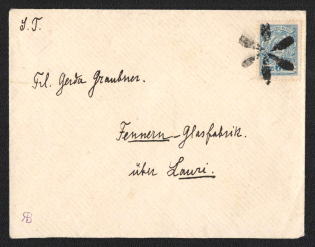 S. T.
Frl. Gerda Graubner.
Fennern-Glasfabrik.
über Lauri.